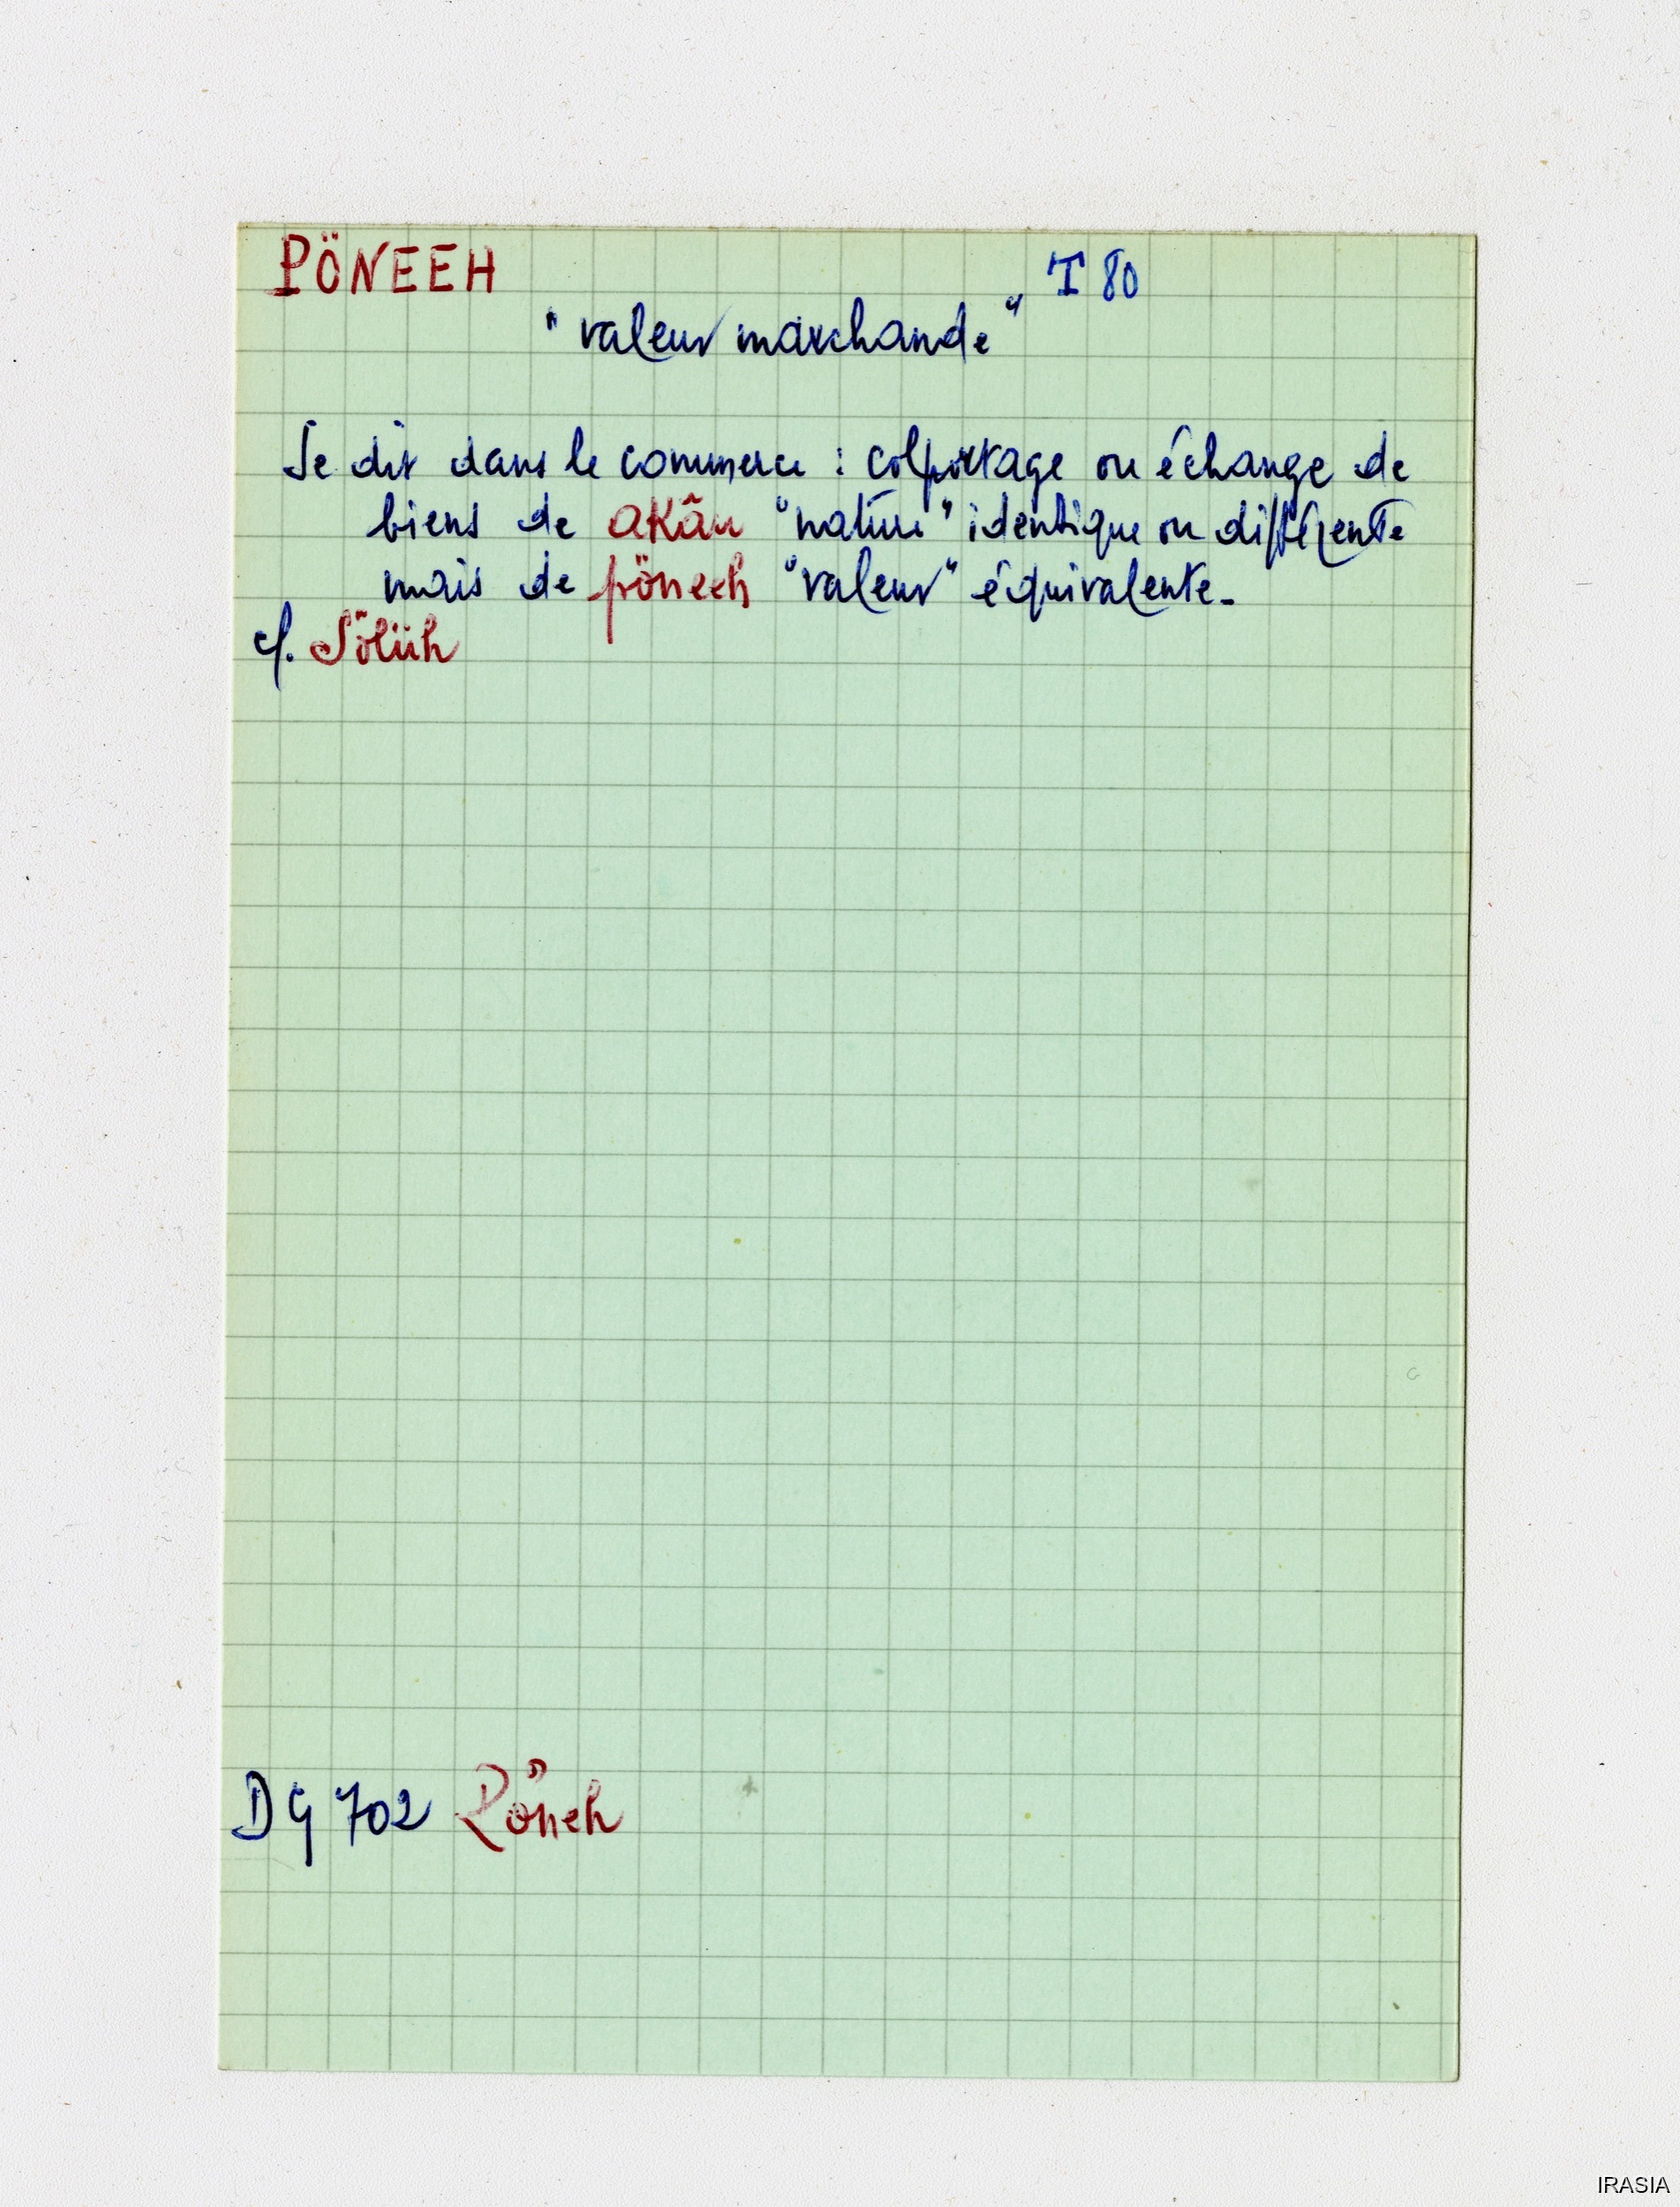 PÖNEEH T 80
"valeur marchande"
Se dit dans le commerce : colportage ou échange de
biens de akãn "nature" identique ou différente
mais de pöneeh "valeur" équivalente.
cf. Söliih
DG 702 Pöneh
IRASIA